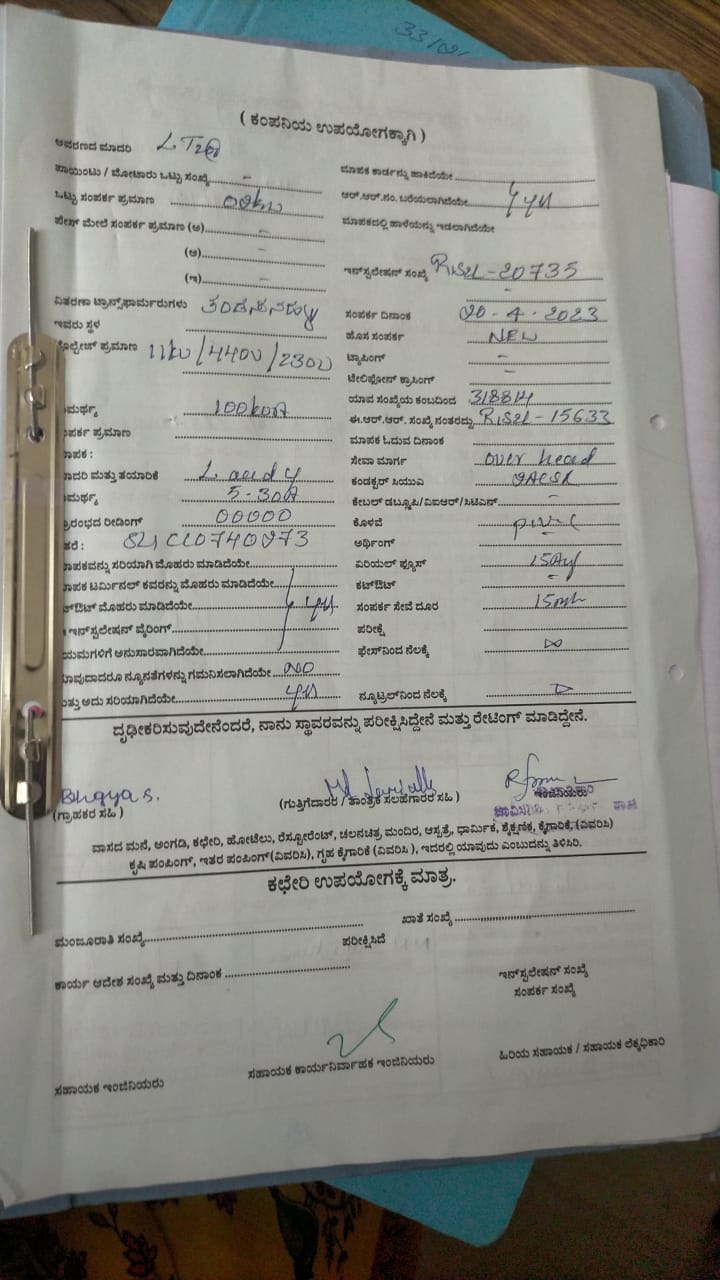 33/21
( ಕಂಪನಿಯ ಉಪಯೋಗಕ್ಕಾಗಿ )
ಆವರಣದ ಮಾದರಿ LT2
ಪಾಯಿಂಟು / ಮೋಟಾರು ಒಟ್ಟು ಸಂಖ್ಯೆ - ಮಾಪಕ ಕಾರ್ಡನ್ನು ಹಾಕಿದೆಯೇ
ಒಟ್ಟು ಸಂಪರ್ಕ ಪ್ರಮಾಣ 02kw ಆರ್.ಆರ್.ನಂ. ಬರೆಯಲಾಗಿದೆಯೇ yes
ಫೇಸ್ ಮೇಲೆ ಸಂಪರ್ಕ ಪ್ರಮಾಣ (ಅ) - ಮಾಪಕದಲ್ಲಿ ಹಾಳೆಯನ್ನು ಇಡಲಾಗಿದೆಯೇ
(ಆ) -
(ಇ) - ಇನ್‌ಸ್ಟಲೇಷನ್ ಸಂಖ್ಯೆ RISZL-20735
ವಿತರಣಾ ಟ್ರಾನ್ಸ್‌ಫಾರ್ಮರುಗಳು ಸಂಪರ್ಕ ದಿನಾಂಕ 20-4-2023
ಇವರು ಸ್ಥಳ ಹೊಸ ಸಂಪರ್ಕ NEW
ವೋಲ್ಟೇಜ್ ಪ್ರಮಾಣ 11kv/440v/230v ಟ್ಯಾಪಿಂಗ್ -
ಟೆಲಿಫೋನ್ ಕ್ರಾಸಿಂಗ್ -
ಯಾವ ಸಂಖ್ಯೆಯ ಕಂಬದಿಂದ 318814
ಮರ್ಥ್ಯ 100kva ಈ.ಆರ್.ಆರ್. ಸಂಖ್ಯೆ ನಂತರದ್ದು RISZL-15633
ಪರ್ಕ ಪ್ರಮಾಣ ಮಾಪಕ ಓದುವ ದಿನಾಂಕ
ಾಪಕ : ಸೇವಾ ಮಾರ್ಗ over head
ಾದರಿ ಮತ್ತು ತಯಾರಿಕೆ L and y ಕಂಡಕ್ಟರ್ ಸಿಯುವಿ
ಮರ್ಥ್ಯ 5-30A ಕೇಬಲ್ ಡಬ್ಲೂಪಿ/ಏಐಆರ್/ಸಿಟಿಎಸ್ -
್ರಾರಂಭದ ರೀಡಿಂಗ್ 00000 ಕೊಳವೆ pivc
ತರೆ : ಅರ್ಥಿಂಗ್ -
ಾಪಕವನ್ನು ಸರಿಯಾಗಿ ಮೊಹರು ಮಾಡಿದೆಯೇ ಏರಿಯಲ್ ಫ್ಯೂಸ್
ಾಪಕ ಟರ್ಮಿನಲ್ ಕವರನ್ನು ಮೊಹರು ಮಾಡಿದೆಯೇ ಕಟ್‌ಔಟ್ -
ಟ್‌ಔಟ್ ಮೊಹರು ಮಾಡಿದೆಯೇ yes ಸಂಪರ್ಕ ಸೇವೆ ದೂರ
ಇನ್‌ಸ್ಟಲೇಷನ್ ವೈರಿಂಗ್ ಪರೀಕ್ಷೆ
ಯಮಗಳಿಗೆ ಅನುಸಾರವಾಗಿದೆಯೇ ಫೇಸ್‌ನಿಂದ ನೆಲಕ್ಕೆ
ಾವುದಾದರೂ ನ್ಯೂನತೆಗಳನ್ನು ಗಮನಿಸಲಾಗಿದೆಯೇ NO
ತ್ತು ಅದು ಸರಿಯಾಗಿದೆಯೇ yes ನ್ಯೂಟ್ರಲ್‌ನಿಂದ ನೆಲಕ್ಕೆ
ದೃಢೀಕರಿಸುವುದೇನೆಂದರೆ, ನಾನು ಸ್ಥಾವರವನ್ನು ಪರೀಕ್ಷಿಸಿದ್ದೇನೆ ಮತ್ತು ರೇಟಿಂಗ್ ಮಾಡಿದ್ದೇನೆ.
Bhgya s.
(ಗ್ರಾಹಕರ ಸಹಿ ) (ಗುತ್ತಿಗೆದಾರರ / ತಾಂತ್ರಿಕ ಸಲಹೆಗಾರರ ಸಹಿ ) ಇಂಜಿನಿಯರು
ವಾಸದ ಮನೆ, ಅಂಗಡಿ, ಕಛೇರಿ, ಹೋಟೆಲು, ರೆಸ್ಟೋರೆಂಟ್, ಚಲನಚಿತ್ರ ಮಂದಿರ, ಆಸ್ಪತ್ರೆ, ಧಾರ್ಮಿಕ, ಶೈಕ್ಷಣಿಕ, ಕೈಗಾರಿಕೆ, (ವಿವರಿಸಿ)
ಕೃಷಿ ಪಂಪಿಂಗ್, ಇತರ ಪಂಪಿಂಗ್(ವಿವರಿಸಿ), ಗೃಹ ಕೈಗಾರಿಕೆ (ವಿವರಿಸಿ ), ಇದರಲ್ಲಿ ಯಾವುದು ಎಂಬುದನ್ನು ತಿಳಿಸಿರಿ.
ಕಛೇರಿ ಉಪಯೋಗಕ್ಕೆ ಮಾತ್ರ.
ಮಂಜೂರಾತಿ ಸಂಖ್ಯೆ ಖಾತೆ ಸಂಖ್ಯೆ
ಪರೀಕ್ಷಿಸಿದೆ
ಕಾರ್ಯ ಆದೇಶ ಸಂಖ್ಯೆ ಮತ್ತು ದಿನಾಂಕ ಇನ್‌ಸ್ಟಲೇಷನ್ ಸಂಖ್ಯೆ
ಸಂಪರ್ಕ ಸಂಖ್ಯೆ
ಸಹಾಯಕ ಇಂಜಿನಿಯರು ಸಹಾಯಕ ಕಾರ್ಯನಿರ್ವಾಹಕ ಇಂಜಿನಿಯರು ಹಿರಿಯ ಸಹಾಯಕ / ಸಹಾಯಕ ಲೆಕ್ಕಧಿಕಾರಿ